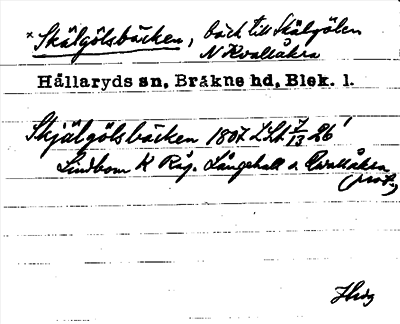 × Skälgölsbäcken, bäck till Skälgölen
N Kvallåkra
Hållaryds sn, Bräkne hd, Blek. l.
Skjälgölsbäcken 1807 LSA 7/13 26'
Lindbom K Råg. Långehall o. Qvallåkra
(prot.)